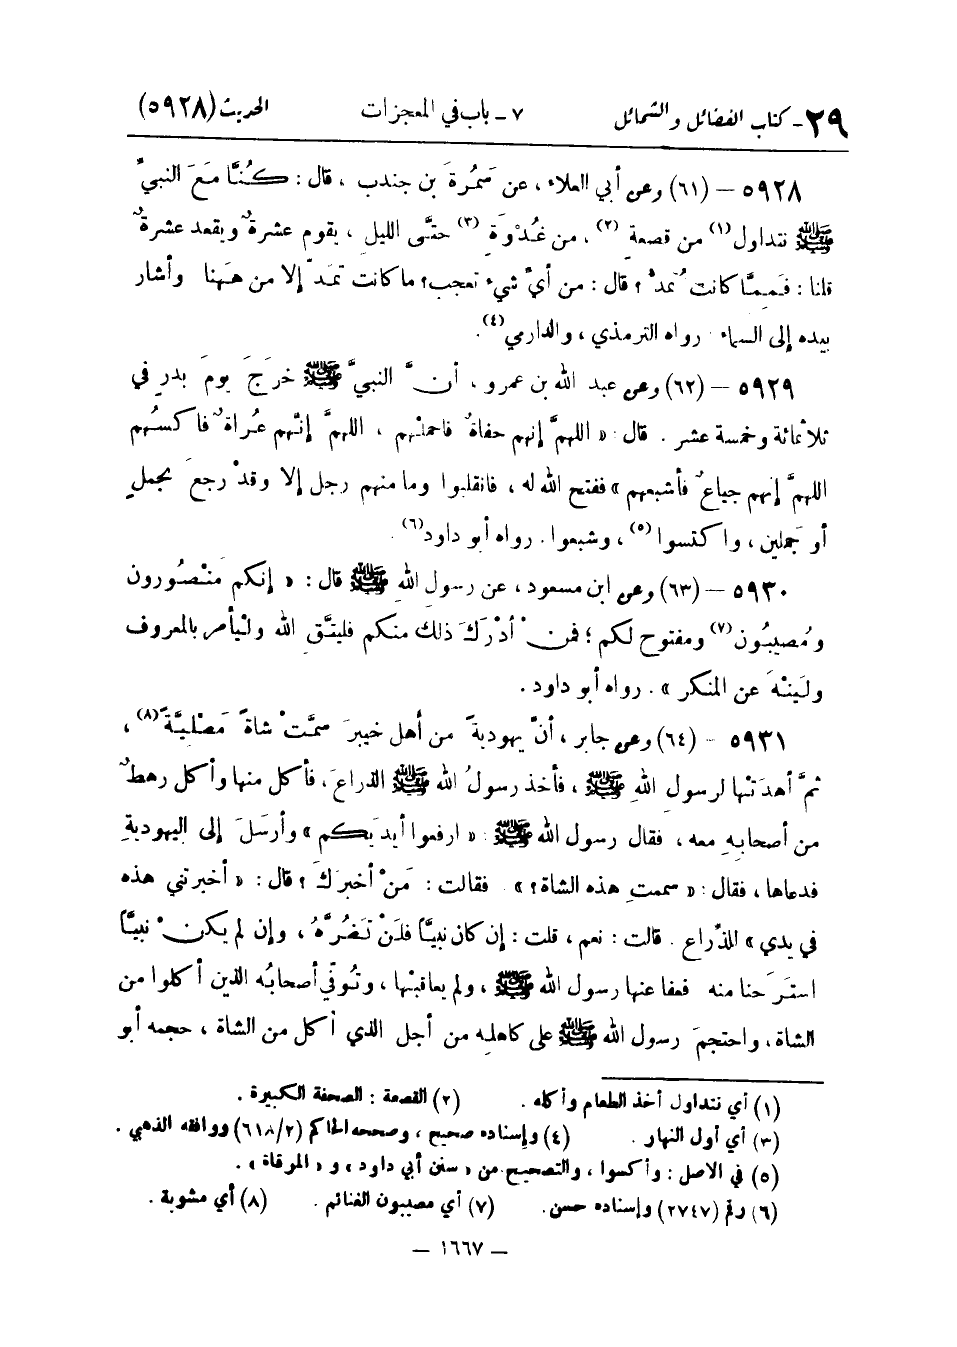 ٢٩ - كتاب الفضائل والشمائل ٧ - باب في المعجزات الحديث (٥٩٢٨)
٥٩٢٨ - (٦١) وعن أبي العلاء، عن سَمُرةَ بن جندب، قال: كُنَّا مَعَ النبيِّ
ﷺ نتداول(١) من قصعةٍ(٢)، من غُدْوَةٍ(٣) حتَّى الليل، يقوم عشرةٌ ويقعد عشرةٌ
قلنا: فَمِمَّا كانت تُمَدُّ؟ قال: من أيِّ شيءٍ تعجب؟ ما كانت تمَدّ إلا من هَهنا وأشار
بيده إلى السماء. رواه الترمذي، والدارمي(٤).
٥٩٢٩ - (٦٢) وعن عبد الله بن عمرو، أنَّ النبيَّ ﷺ خرَجَ يومَ بدرٍ في
ثلاثمائة وخمسة عشر. قال: « اللهمَّ إنهم حفاةٌ فاحملْهم، اللهمَّ إنَّهم عُراةٌ فاكسُهم
اللهمَّ إنهم جياعٌ فأشبعهم » ففتح الله له، فانقلبوا وما منهم رجل إلا وقدْ رجعَ بجملٍ
أو جَملين، واكتسوا(٥)، وشبعوا. رواه أبو داود(٦).
٥٩٣٠ - (٦٣) وعن ابن مسعود، عن رسول اللهِ ﷺ قال: « إنكم مَنْصُورون
ومُصيبُون(٧) ومفتوح لكم؛ فمنْ أدْرَكَ ذلك منكم فليتَّقِ الله ولْيأمر بالمعروف
ولْيَنْهَ عن المنكر ». رواه أبو داود.
٥٩٣١ - (٦٤) وعن جابر، أنَّ يهوديةً من أهل خيبرَ سمَّتْ شاةً مَصْليَّةً(٨)،
ثمَّ أهدَتْها لرسولِ اللهِ ﷺ، فأخذ رسولُ الله ﷺ الذراعَ، فأكل منها وأكل رهطٌ
من أصحابِهِ معه، فقال رسول الله ﷺ: « ارفعوا أيديَكم » وأرسَلَ إلى اليهوديةِ
فدعاها، فقال: « سممتِ هذه الشاة؟ ». فقالت: مَنْ أخبرَكَ؟ قال: « أخبرتني هذه
في يدي » للذِّراع. قالت: نعم، قلت: إن كان نبيَّاً فلَنْ تَضُرَّهُ، وإن لم يكنْ نبيَّاً
استرَحنا منه فعفا عنها رسول الله ﷺ، ولم يعاقبْها، وتُوفِّي أصحابُه الذين أكلوا من
الشاة، واحتجمَ رسول الله ﷺ على كاهلِه من أجل الذي أكل من الشاة، حجمه أبو
(١) أي نتداول أخذ الطعام وأكله. (٢) القصعة: الصحفة الكبيرة.
(٣) أي أول النهار. (٤) وإسناده صحيح، وصححه الحاكم (٦١٨/٢) ووافقه الذهبي.
(٥) في الاصل: وأكسوا، والتصحيح من « سنن أبي داود » و « المرقاة ».
(٦) رقم (٢٧٤٧) وإسناده حسن. (٧) أي مصيبون الغنائم. (٨) أي مشوية.
- ١٦٦٧ -